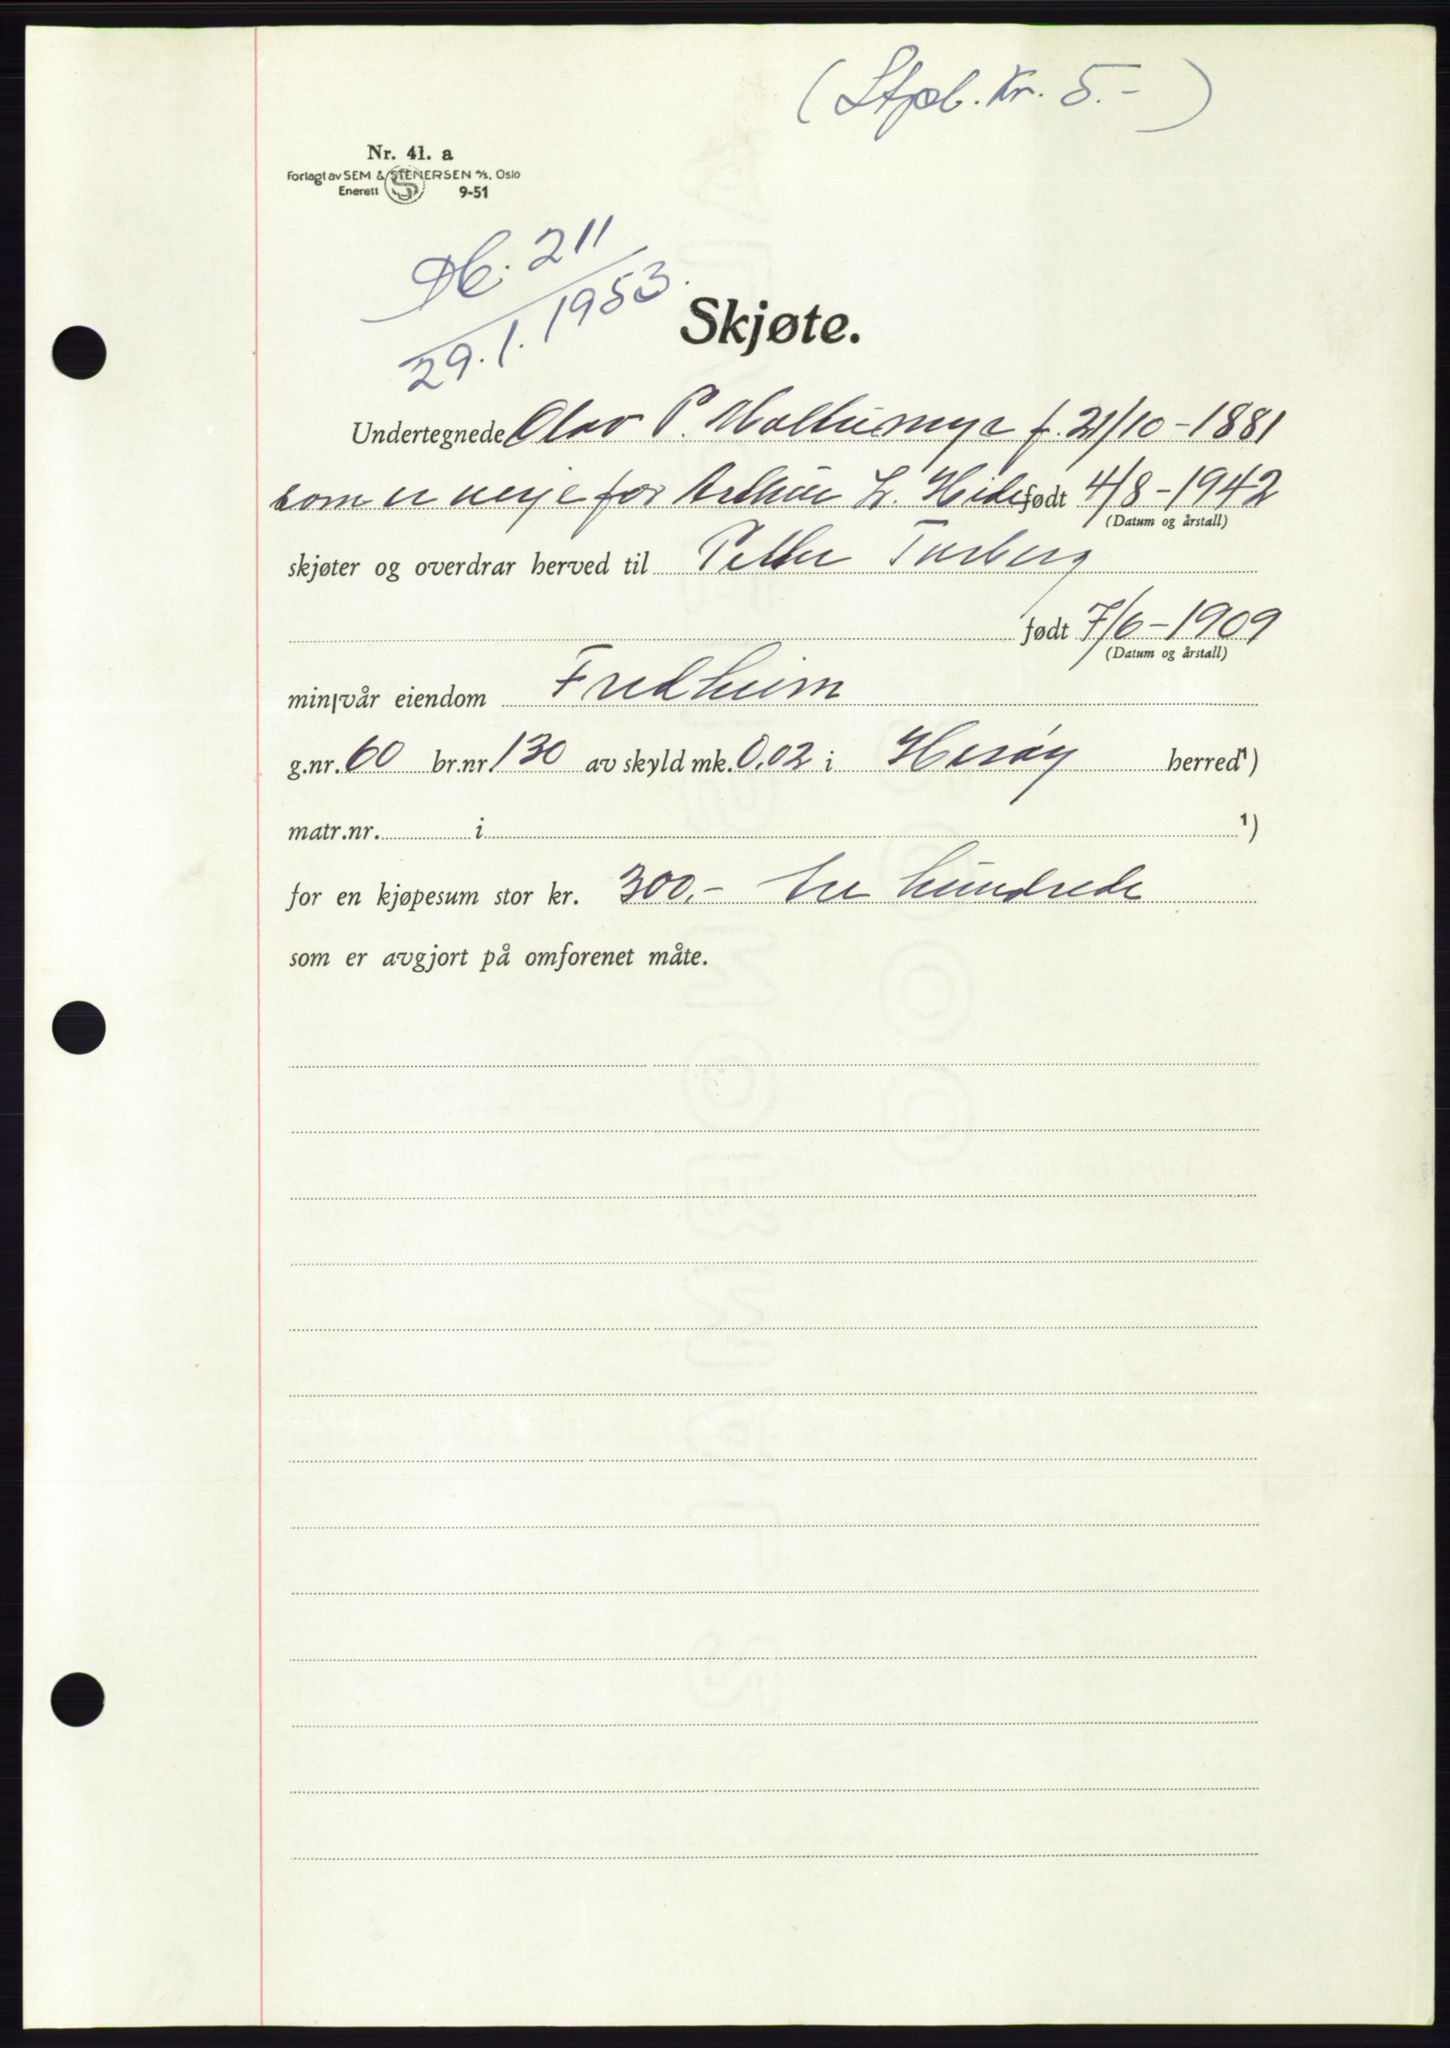 (Stpb. Kr. 5.-)
Nr. 41. a
Forlagt av SEM & STENERSEN A/S, Oslo
Enerett S 9-51
Db. 211
29.1.1953.
Skjøte.
Undertegnede Olav P. f. 21/10-1881
som er verje for Arthur L. Heide født 4/8-1942
(Datum og årstall)
skjøter og overdrar herved til Petter Furberg
født 7/6-1909
(Datum og årstall)
min/vår eiendom Fredheim
g.nr. 60 br.nr. 130 av skyld mk. 0,02 i Herøy herred¹)
matr.nr. i ¹)
for en kjøpesum stor kr. 300.- tre hundrede
som er avgjort på omforenet måte.